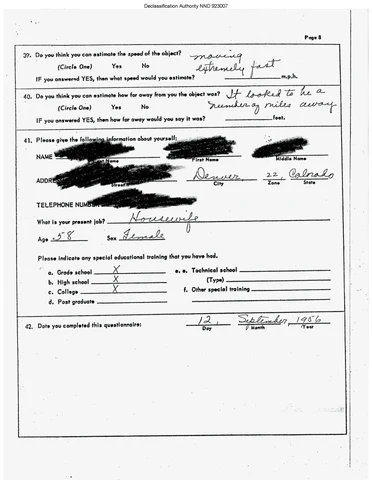 Declassification Authority NND 923007
Page 8
39. Do you think you can estimate the speed of the object? moving
(Circle One) Yes No extremely fast
IF you answered YES, then what speed would you estimate? m.p.h.
40. Do you think you can estimate how far away from you the object was? It looked to be a
(Circle One) Yes No number of miles away
IF you answered YES, then how far away would you say it was? feet.
41. Please give the following information about yourself:
NAME
Name First Name Middle Name
ADDRE Denver 22, Colorado
Street City Zone State
TELEPHONE NUMBER
What is your present job? Housewife
Age 58 Sex Female
Please indicate any special educational training that you have had.
a. Grade school X e. e. Technical school
b. High school X (Type)
c. College X f. Other special training
d. Post graduate
42. Date you completed this questionnaire: 12, September, 1956
Day Month Year